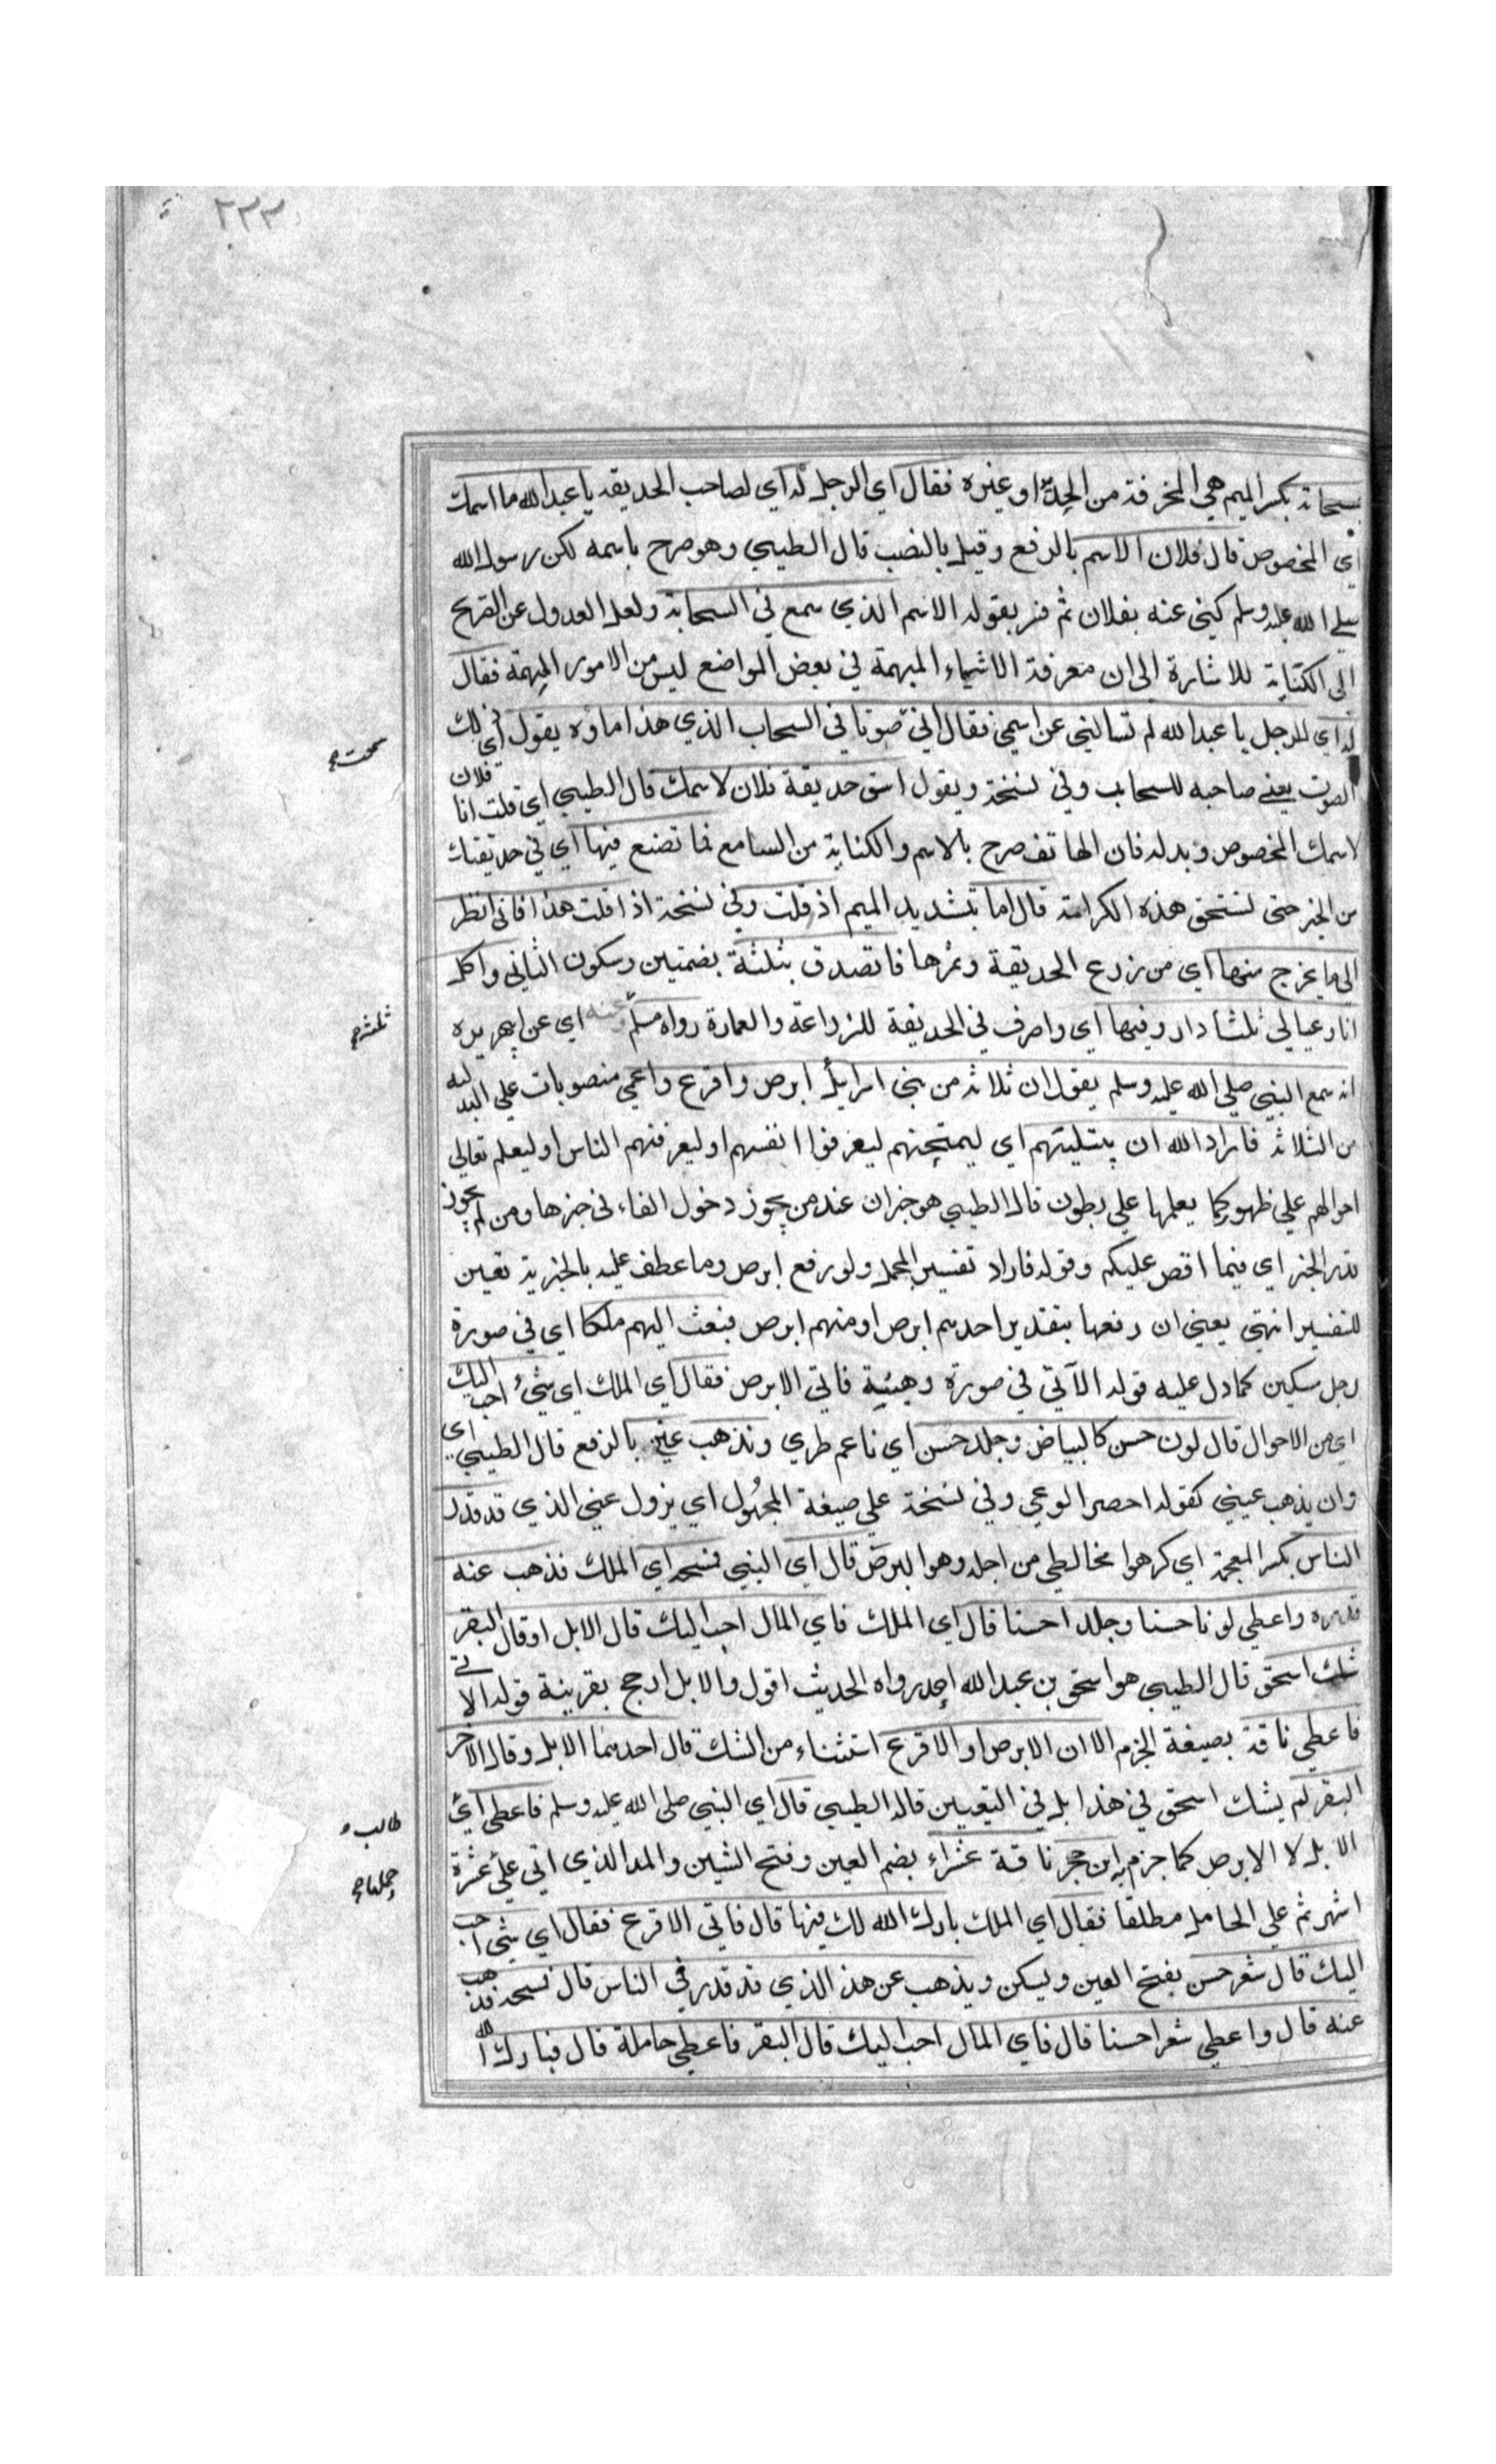 ٢٣٣
بمسحاته بكسر الميم هي المخرفة من الحديد او غيره فقال اي الرجل له اي لصاحب الحديقة يا عبد الله ما اسمك
اي المخصوص قال فلان الاسم بالرفع وقيل بالنصب قال الطيبي وهو صرح باسمه لكن رسول الله
صلى الله عليه وسلم كنى عنه بفلان ثم فسر بقوله الاسم الذي سمع في السحابة ولعل العدول عن التصريح
الى الكناية للاشارة الى ان معرفة الاشياء المبهمة في بعض المواضع ليس من الامور المهمة فقال
له اي للرجل يا عبد الله لم تسالني عن اسمي فقال اني صوتا في السحاب الذي هذا ماؤه يقول اي ذلك
سمعت صح
الصوت يعني صاحبه للسحاب وفي نسخة ويقول اسق حديقة فلان لاسمك قال الطيبي اي قلت انا فلان
لاسمك المخصوص وبدله فان الهاتف صرح بالاسم والكناية من السامع فما تصنع فيها اي في حديقتك
من الخير حتى تستحق هذه الكرامة قال اما بتشديد الميم اذ قلت وفي نسخة اذا قلت هذا فاني انظر
الى ما يخرج منها اي من زرع الحديقة وثمرها فاتصدق بثلثة بضمتين وسكون الثاني واكل
انا وعيالي ثلثا وارد فيها اي واصرف في الحديقة للزراعة والعمارة رواه مسلم وعنه اي عن ابي هريرة
ثلثه صح
انه سمع النبي صلى الله عليه وسلم يقول ان ثلاثة من بني اسرايل ابرص واقرع واعمى منصوبات على البدلية
من الثلاثة فاراد الله ان يبتليهم اي ليمتحنهم ليعرفوا انفسهم او ليعرفهم الناس او ليعلم تعالى
احوالهم على ظهور كما يعلمها على بطون قال الطيبي هو خبر ان عند من يجوز دخول الفاء في خبرها ومن لم يجوز
قدر الخبر اي فيما اقص عليكم وقوله فاراد تفسير المجمل ولو رفع ابرص وما عطف عليه بالخبرية تعين
للتفسير انتهى يعني ان رفعها بتقدير احدهم ابرص او منهم ابرص فبعث اليهم ملكا اي في صورة
رجل مسكين كما دل عليه قوله الآتي في صورة وهيئة فاتى الابرص فقال اي الملك اي شيء احب اليك
اي من الاحوال قال لون حسن كالبياض وجلد حسن اي ناعم طري ويذهب عني بالرفع قال الطيبي اي
وان يذهب عني كقوله احضر الوغى وفي نسخة على صيغة المجهول اي يزول عني الذي قد قذرني
الناس بكسر المعجمة اي كرهوا مخالطي من اجله وهو البرص قال اي النبي فمسحه اي الملك فذهب عنه
قذره واعطي لونا حسنا وجلدا حسنا قال اي الملك فاي المال احب اليك قال الابل او قال البقر
شك اسحق قال الطيبي هو اسحق بن عبد الله احد رواة الحديث اقول والابل ارجح بقرينة قوله الاتي
فاعطي ناقة بصيغة الجزم الا ان الابرص او الاقرع استثناء من الشك قال احدهما الابل وقال الاخر
البقر لم يشك اسحق في هذا بل في التعيين قاله الطيبي قال اي النبي صلى الله عليه وسلم فاعطي اي
طالب
الابل لا الابرص كما جزم به ابن حجر ناقة عشراء بضم العين وفتح الشين والمد الذي اتى على عشرة
حملها صح
اشهر ثم على الحامل مطلقا فقال اي الملك بارك الله لك فيها قال فاتى الاقرع فقال اي شيء احب
اليك قال شعر حسن بفتح العين ويسكن ويذهب عن هذا الذي قد قذرني الناس قال فمسحه فذهب
عنه قال واعطي شعرا حسنا قال فاي المال احب اليك قال البقر فاعطي حاملة قال فبارك الله